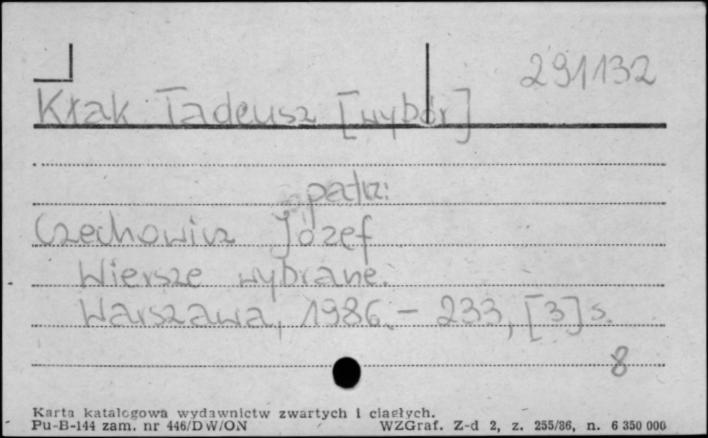 291132
Kłak Tadeusz [wybór]
patrz:
Czechowicz Józef
Wiersze wybrane.
Warszawa, 1986. – 233, [3] s.
8
Karta katalogowa wydawnictw zwartych i ciągłych.
Pu-B-144 zam. nr 446/DW/ON WZGraf. Z-d 2, z. 255/86, n. 6 350 000